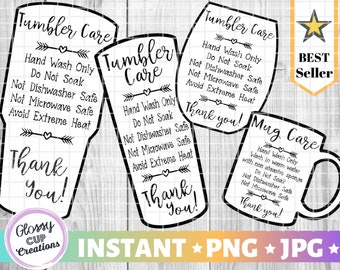 Tumbler
Care
Hand Wash Only
Do Not Soak
Not Dishwasher Safe
Not Microwave Safe
Avoid Extreme Heat
Thank
You!
Tumbler
Care
Hand Wash Only
Do Not Soak
Not Dishwasher Safe
Not Microwave Safe
Avoid Extreme Heat
Thank
You!
Tumbler Care
Hand Wash Only
Do Not Soak
Not Dishwasher Safe
Not Microwave Safe
Avoid Extreme Heat
Thank you!
BEST
Seller
Mug Care
Hand Wash Only
Wash in warm water
with non abrasive sponge
Do Not Soak
Not Dishwasher Safe
Not Microwave Safe
Thank you!
Glossy
CUP
Creations
INSTANT PNG JPG